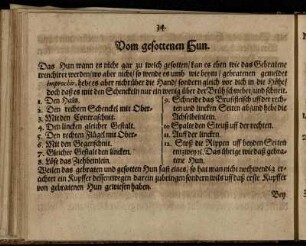 34.
Vom gesottenen Hun.
Das Hun wann es nicht gar zu weich gesotten / kan es eben wie das Gebratene
trenchirt werden / wo aber nicht / so wende es umb wie beym gebratenen gemeldet
improchir, hebe es aber nicht über die Hand / sondern gleich vor dich in die Höhe /
doch daß es mit den Schenckeln nur ein wenig über der Brüh schwebet / und schneit.
1. Den Hals.
2. Den rechten Schenckel mit Ober-
3. Mit den Contraschnit.
4. Den lincken gleicher Gestalt.
5. Den rechten Flügel mit Ober-
6. Mit den Gegenschnit.
7. Gleicher Gestalt den lincken.
8. Löse das Ziehbeinlein.
9. Schneide das Brustfleisch uff der rech-
ten und lincken Seiten ab / und hebe die
Achselbeinlein.
10. Spalte den Steuß uff der rechten.
11. Auff der lincken.
12. Stoß die Rippen uff beyden Seiten
entzwey / Das übrige wie daß gebra-
tene Hun.
Weilen das gebraten und gesotten Hun fast eines / so hat man nicht nothwendig er-
achtet ein Kupffer dessentwegen darein zubringen sondern wils uff daß erste Kupffer
von gebratenen Hun gewiesen haben.
Bey